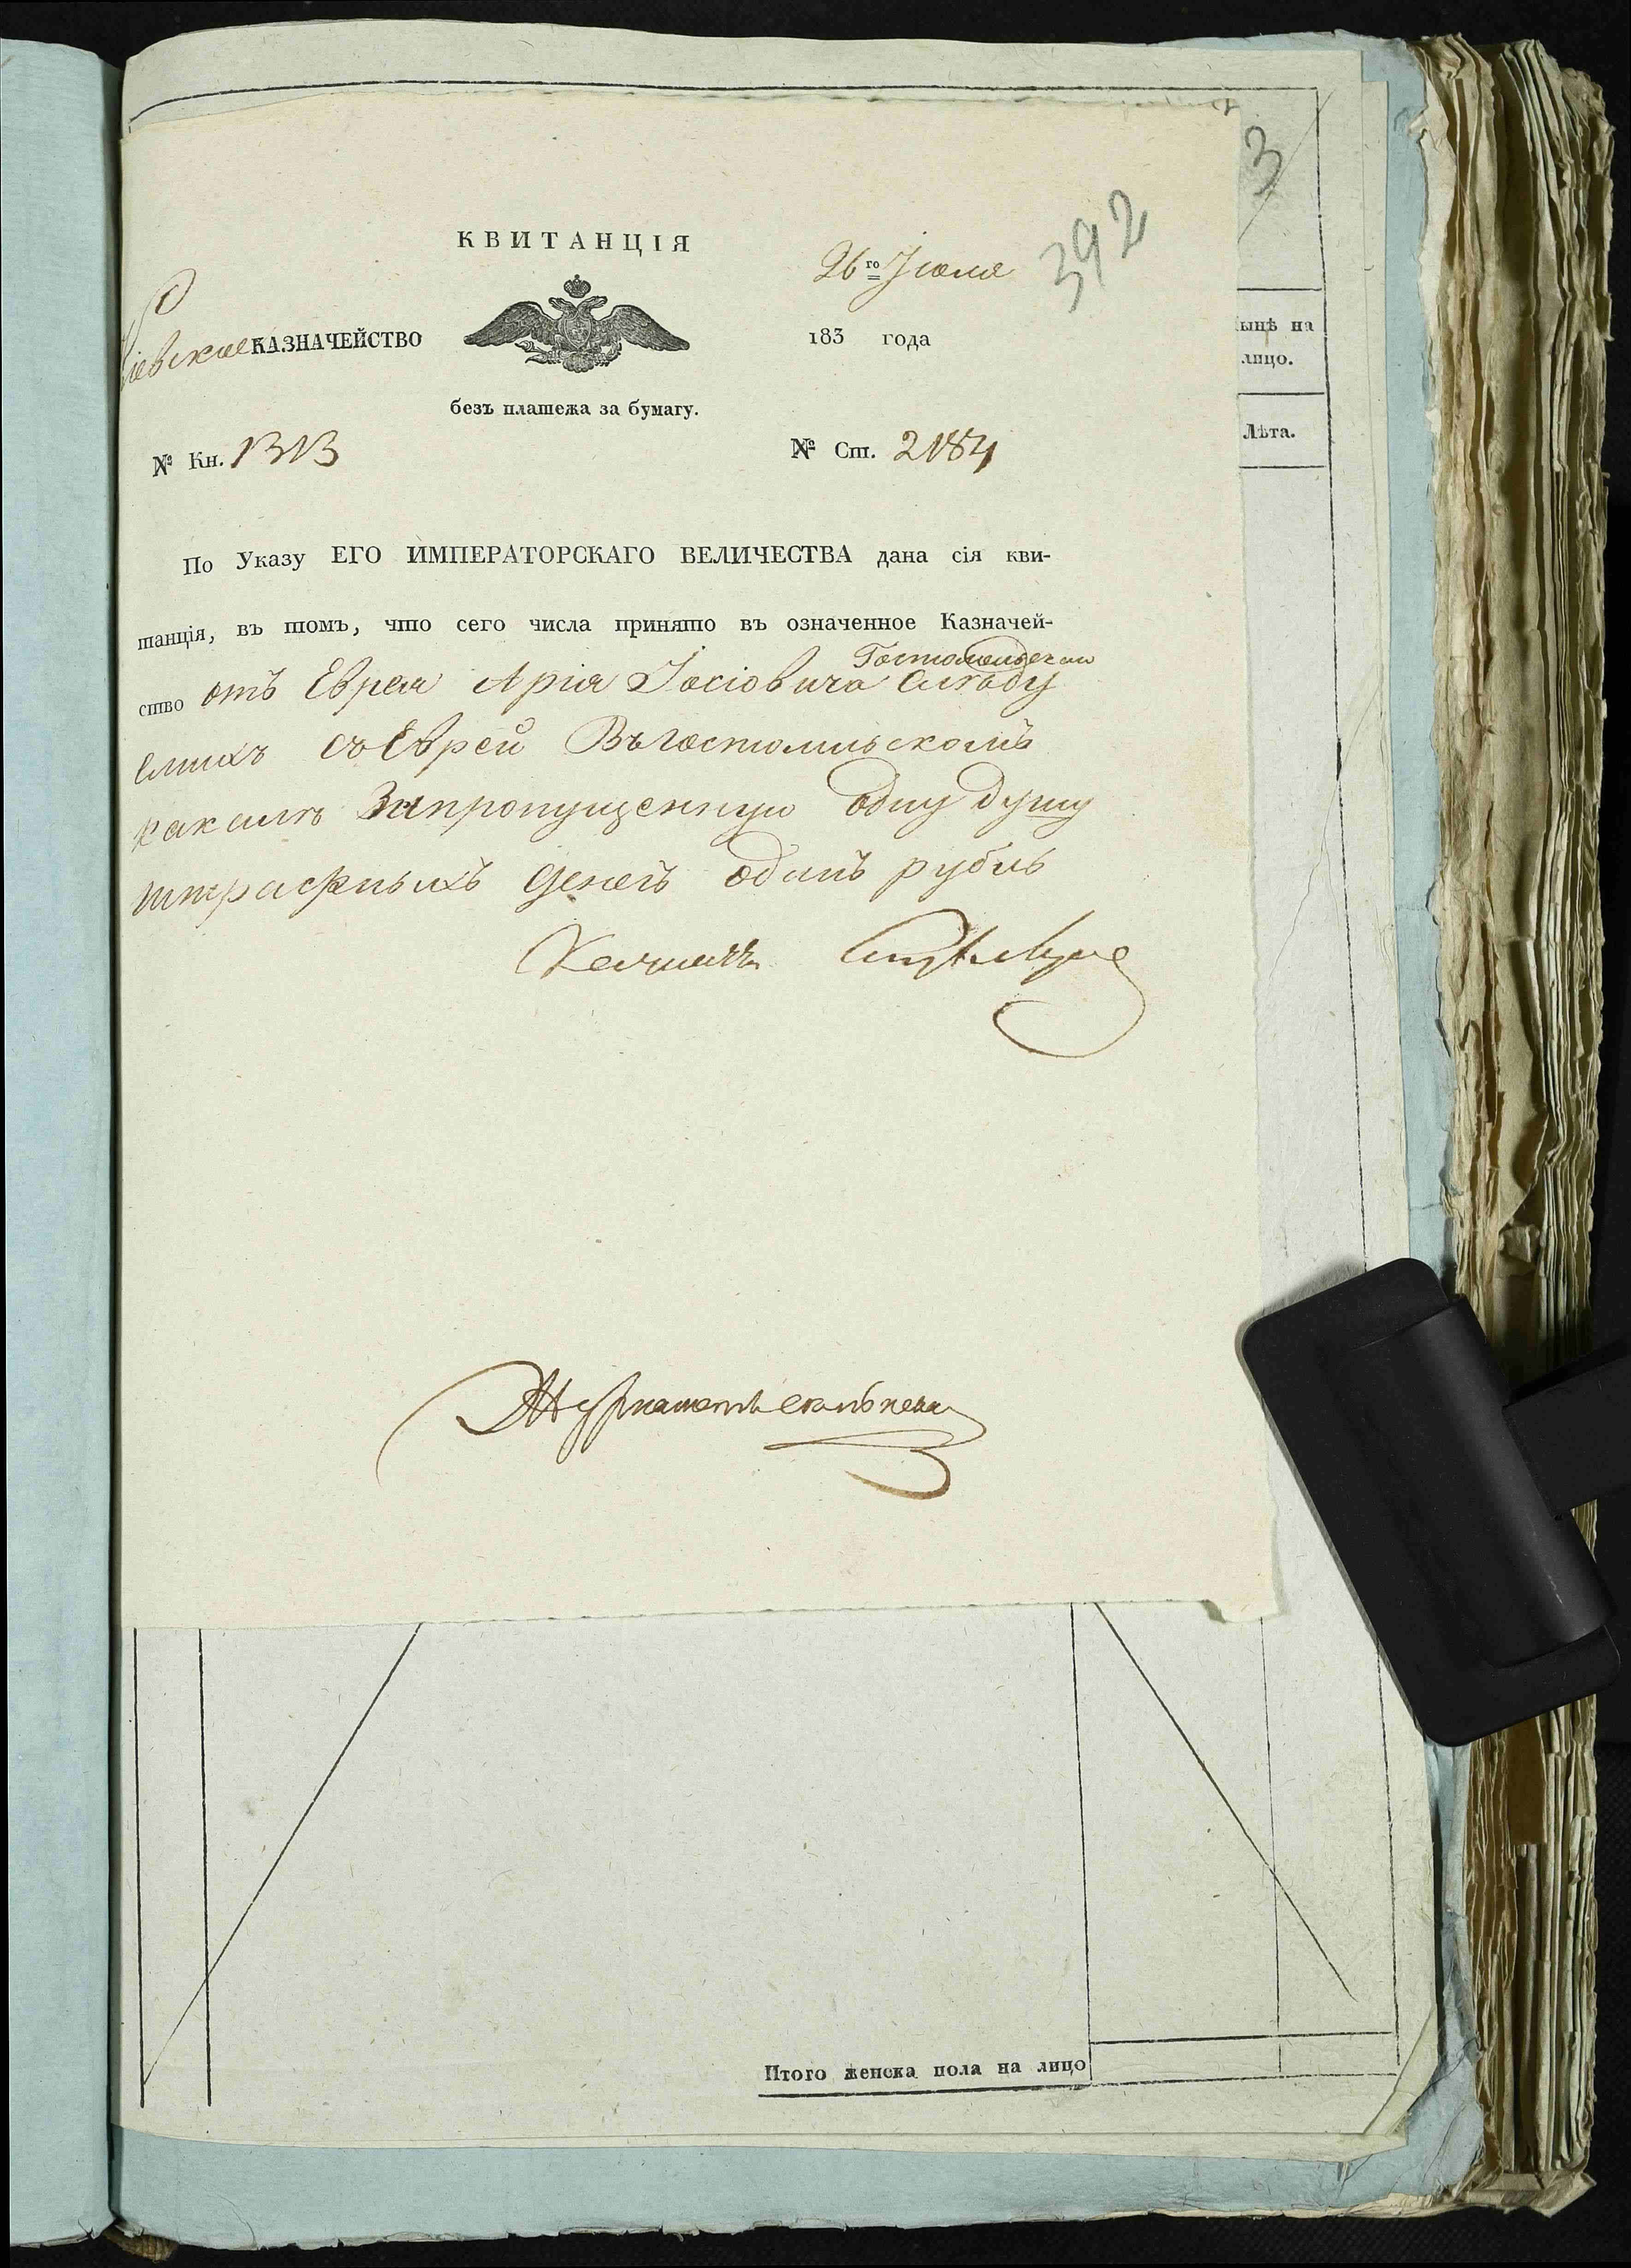 3
392
КВИТАНЦІЯ
26го Іюля
Кіевское КАЗНАЧЕЙСТВО
183 года
безъ платежа за бумагу.
№ Кн. 1313
№ Ст. 2184
По Указу ЕГО ИМПЕРАТОРСКАГО ВЕЛИЧЕСТВА дана сія кви-
танція, въ томъ, что сего числа принято въ означенное Казначей-
ство отъ Еврея Арія Іосіовича
съ Еврей Въ Гостомльскомъ
кагалѣ За пропущенную одну душу
штрафныхъ денегъ одинъ рубль
ынѣ на
лицо.
Лѣта.
Итого женска пола на лицо